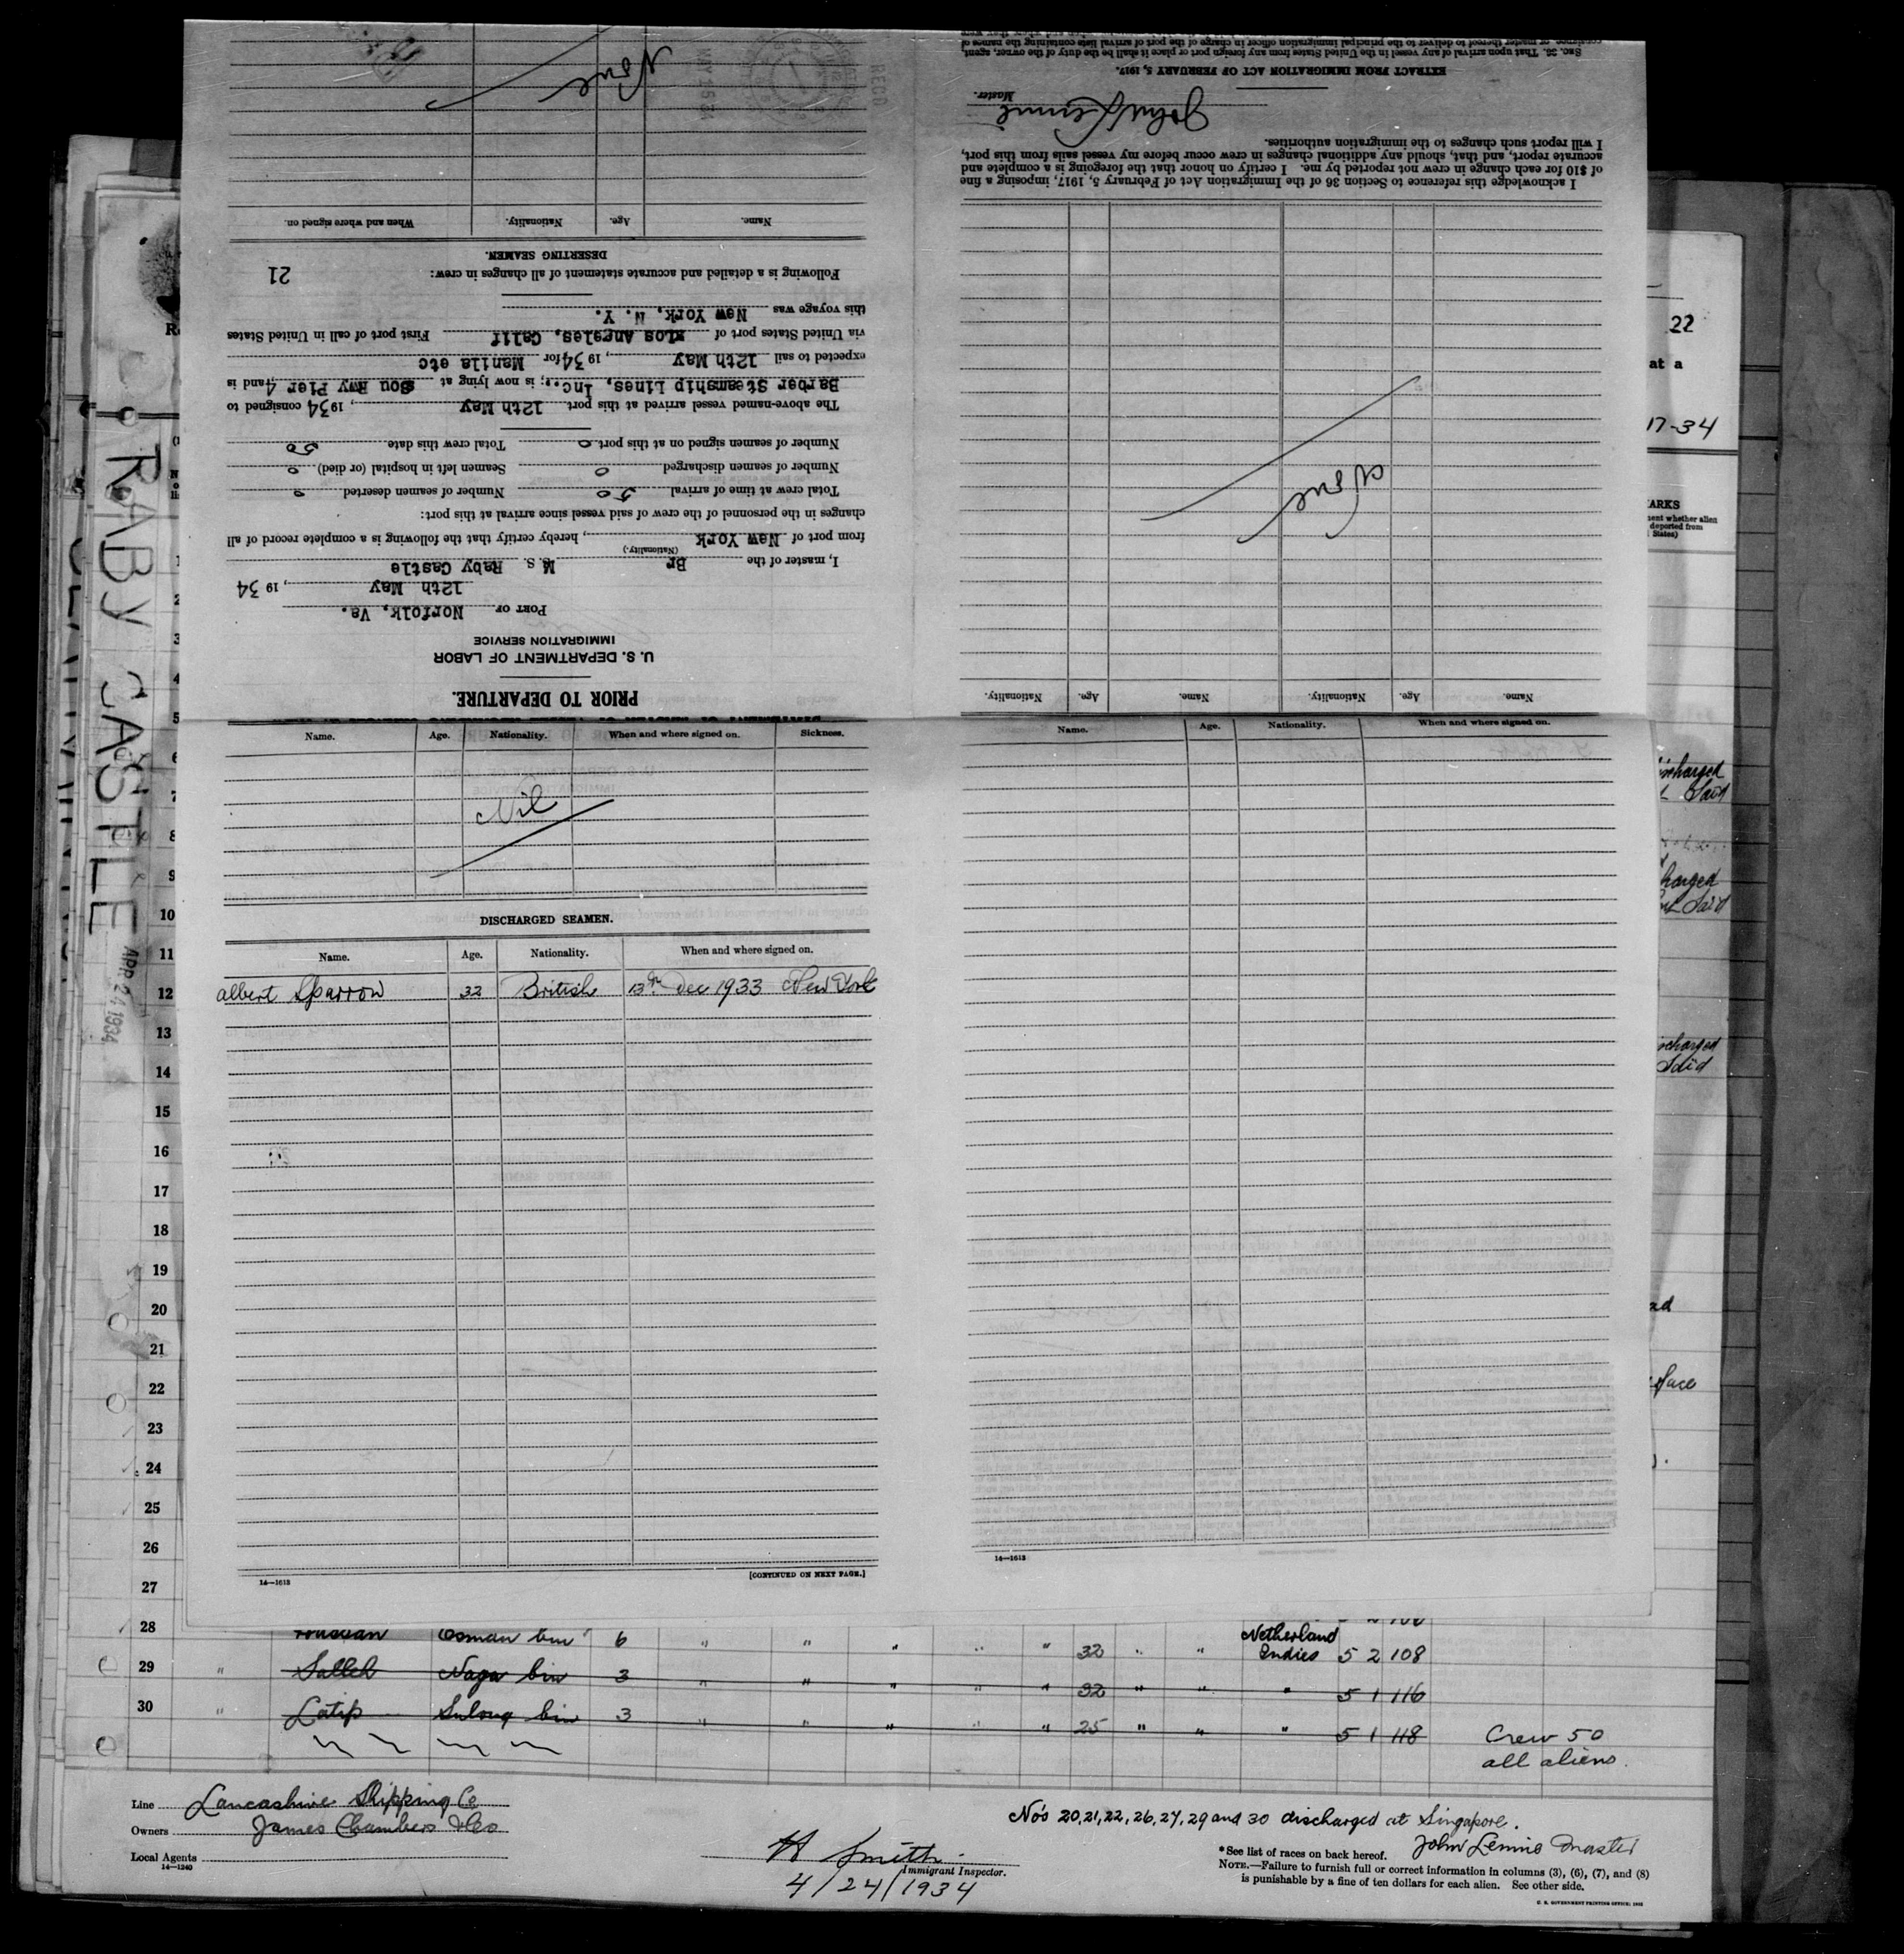 PRIOR TO DEPARTURE.
U. S. DEPARTMENT OF LABOR
IMMIGRATION SERVICE
PORT OF Norfolk, Va.
12th May, 1934
I, master of the Br M.S. Raby Castle
(Nationality.)
from port of New York, hereby certify that the following is a complete record of all
changes in the personnel of the crew of said vessel since arrival at this port:
Total crew at time of arrival 50 Number of seamen deserted 0
Number of seamen discharged 0 Seamen left in hospital (or died) 0
Number of seamen signed on at this port 0 Total crew this date 50
The above-named vessel arrived at this port 12th May, 1934 consigned to
Barber Steamship Lines, Inc.; is now lying at Sou Rwy Pier 4, and is
expected to sail 12th May, 1934 for Manila etc
via United States port of Los Angeles, Calif First port of call in United States
this voyage was New York, N. Y.
Following is a detailed and accurate statement of all changes in crew:
21
DESERTING SEAMEN.
Name. Age. Nationality. When and where signed on.
None
RECD
MAY 15 34
Name. Age. Nationality. Name. Age. Nationality.
None
I acknowledge this reference to Section 36 of the Immigration Act of February 5, 1917, imposing a fine
of $10 for each change in crew not reported by me. I certify on honor that the foregoing is a complete and
accurate report, and that, should any additional changes in crew occur before my vessel sails from this port,
I will report such changes to the immigration authorities.
John Lennie
Master.
EXTRACT FROM IMMIGRATION ACT OF FEBRUARY 5, 1917.
SEC. 36. That upon arrival of any vessel in the United States from any foreign port or place it shall be the duty of the owner, agent,
consignee, or master thereof to deliver to the principal immigration officer in charge of the port of arrival lists containing the names of
Name. Age. Nationality. When and where signed on. Sickness.
Nil
DISCHARGED SEAMEN.
Name. Age. Nationality. When and where signed on.
Albert Sparrow 32 British 13th Dec 1933 New York
14—1613
[CONTINUED ON NEXT PAGE.]
Name. Age. Nationality. When and where signed on.
14—1613
RABY CASTLE
APR 24 1934
1
2
3
4
5
6
7
8
9
10
11
12
13
14
15
16
17
18
19
20
21
22
23
24
25
26
27
22
at a
17-34
ARKS
ment whether alien
deported from
States)
ischarged
Said
harged
Said
scharged
Said
28 Osman bin 6 " " " " " 32 " " Netherland Indies 5 2 108
29 " Salleh Naga bin 3 " " " " " 32 " " " 5 1 116
30 " Latip Sulong bin 3 " " " " " 25 " " " 5 1 118
Crew 50
all aliens.
Line Lancashire Shipping Co
Owners James Chambers & Co
Local Agents
14—1240
H Smith
Immigrant Inspector.
4/24/1934
No's 20, 21, 22, 26, 27, 29 and 30 discharged at Singapore.
John Lennie Master
*See list of races on back hereof.
NOTE.—Failure to furnish full or correct information in columns (3), (6), (7), and (8)
is punishable by a fine of ten dollars for each alien. See other side.
U. S. GOVERNMENT PRINTING OFFICE: 1932